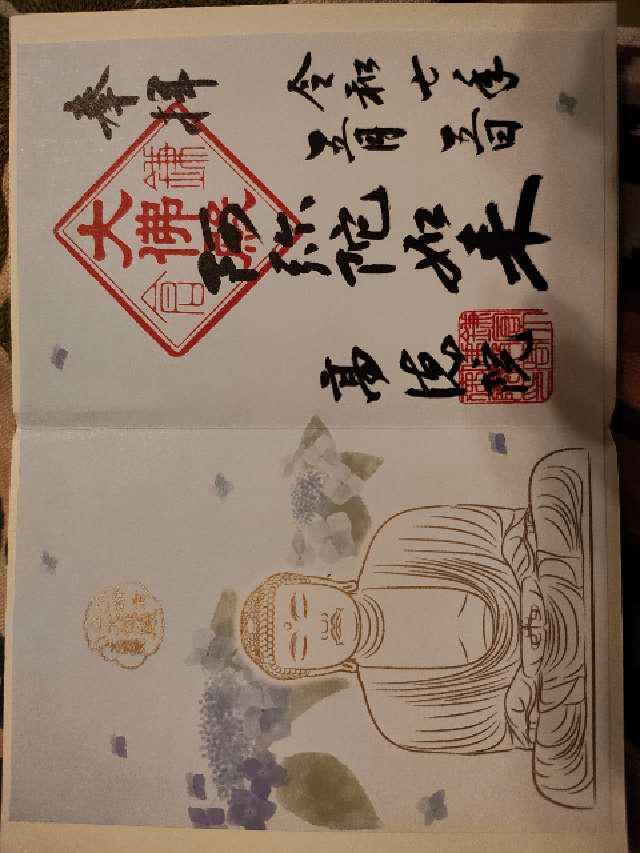 奉拝
令和七年
五月五日
阿弥陀如来
高徳院
大佛殿